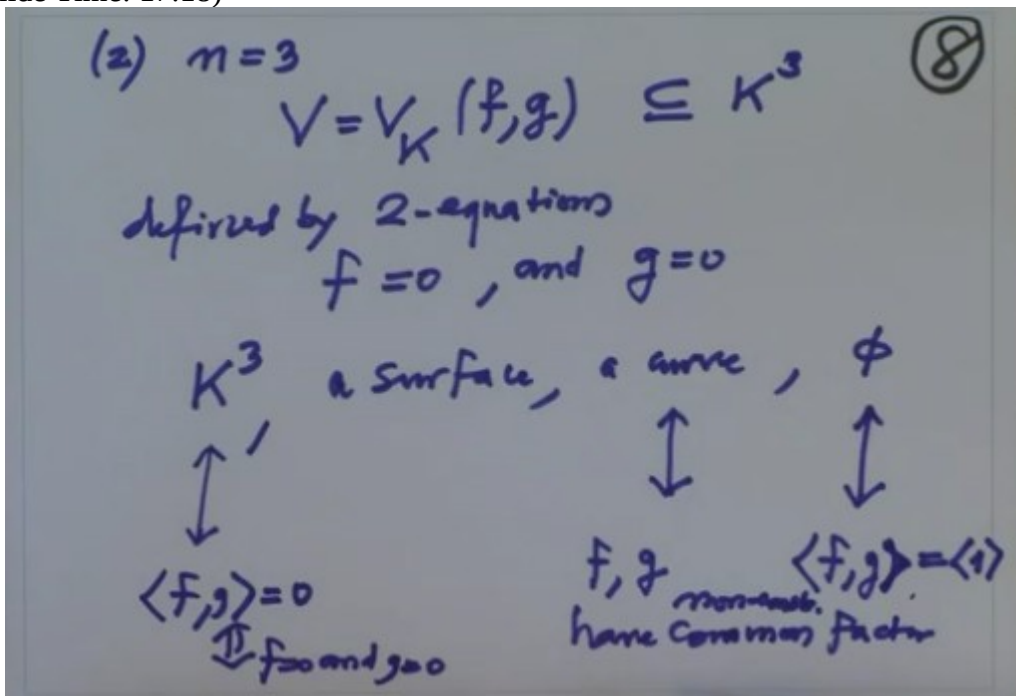 (2) n=3
⑧
V = V_K (f,g) ⊆ K³
defined by 2-equations
f=0, and g=0
K³, a surface, a curve, ϕ
↕ ↕ ↕
f, g ⟨f,g⟩=⟨1⟩
⟨f,g⟩=0 non-const.
have common factor
⇕ f=0 and g=0